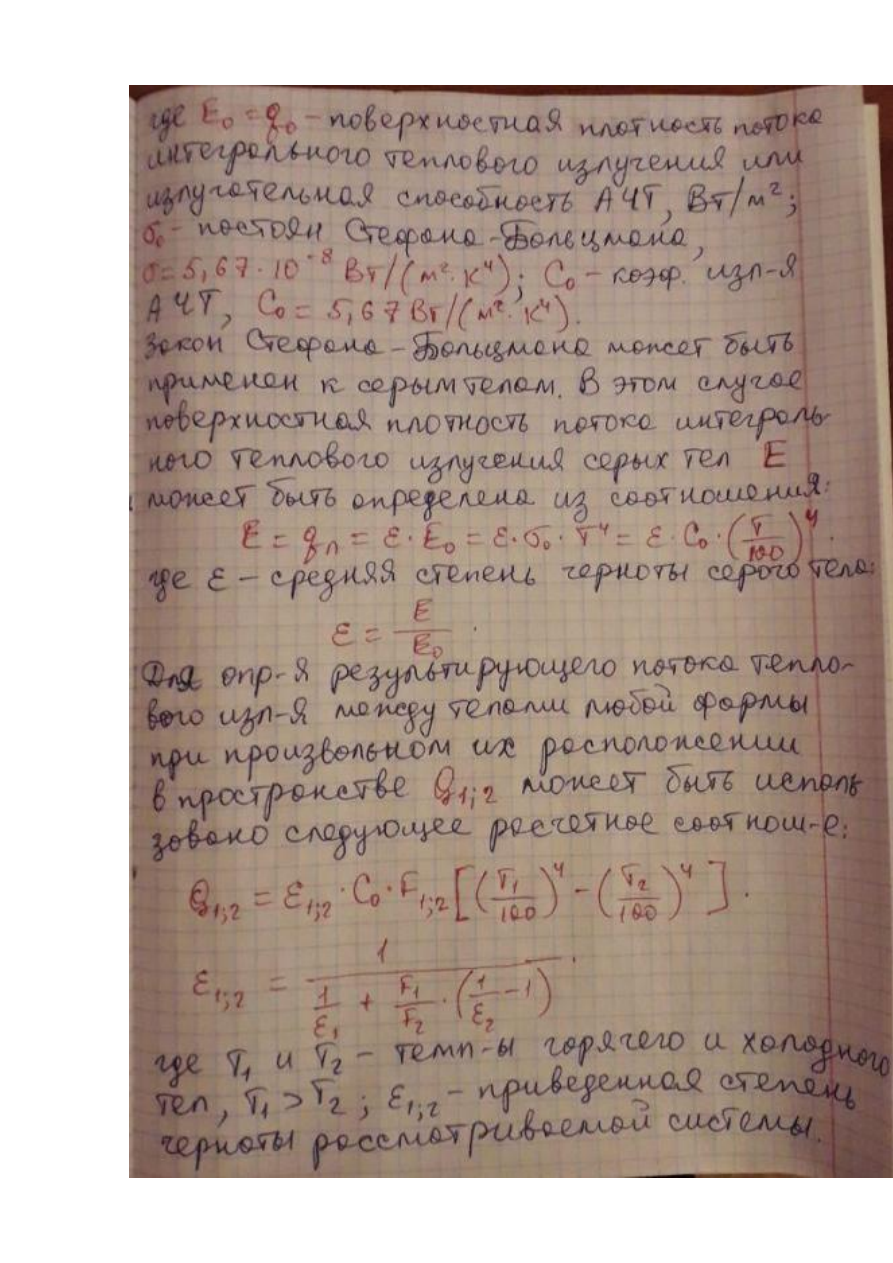 где E₀ = q₀ – поверхностная плотность потока
интегрального теплового излучения или
излучательная способность АЧТ, Вт/м²;
σ₀ – постоян Стефана-Больцмана,
σ = 5,67·10⁻⁸ Вт/(м²·К⁴); C₀ – коэф. изл-я
АЧТ, C₀ = 5,67 Вт/(м²·К⁴).
Закон Стефана – Больцмана может быть
применен к серым телам. В этом случае
поверхностная плотность потока интеграль-
ного теплового излучения серых тел E
может быть определена из соотношения:
E = qл = ε·E₀ = ε·σ₀·T⁴ = ε·C₀·(T/100)⁴.
где ε – средняя степень черноты серого тела:
ε = E/E₀.
Для опр-я результирующего потока тепло-
вого изл-я между телами любой формы
при произвольном их расположении
в пространстве Q₁;₂ может быть исполь
зовано следующее расчетное соотнош-е:
Q₁;₂ = ε₁;₂·C₀·F₁;₂[(T₁/100)⁴ – (T₂/100)⁴].
ε₁;₂ = 1/(1/ε₁ + F₁/F₂·(1/ε₂ – 1)).
где T₁ и T₂ – темп-ы горячего и холодного
тел, T₁ > T₂; ε₁;₂ – приведенная степень
черноты рассматриваемой системы.